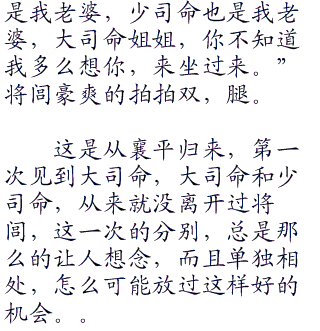 是我老婆，少司命也是我老
婆，大司命姐姐，你不知道
我多么想你，来坐过来。”
将闾豪爽的拍拍双，腿。
这是从襄平归来，第一
次见到大司命，大司命和少
司命，从来就没离开过将
闾，这一次的分别，总是那
么的让人想念，而且单独相
处，怎么可能放过这样好的
机会。。